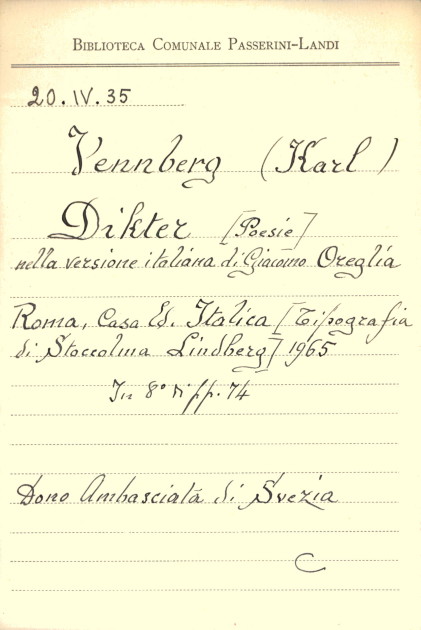 BIBLIOTECA COMUNALE PASSERINI-LANDI
20.IV.35
Vennberg (Karl)
Dikter [Poesie]
nella versione italiana di Giacomo Oreglia
Roma, Casa Ed. Italica [Tipografia
di Stoccolma Lindberg] 1965
In 8° di pp. 74
Dono Ambasciata di Svezia
C